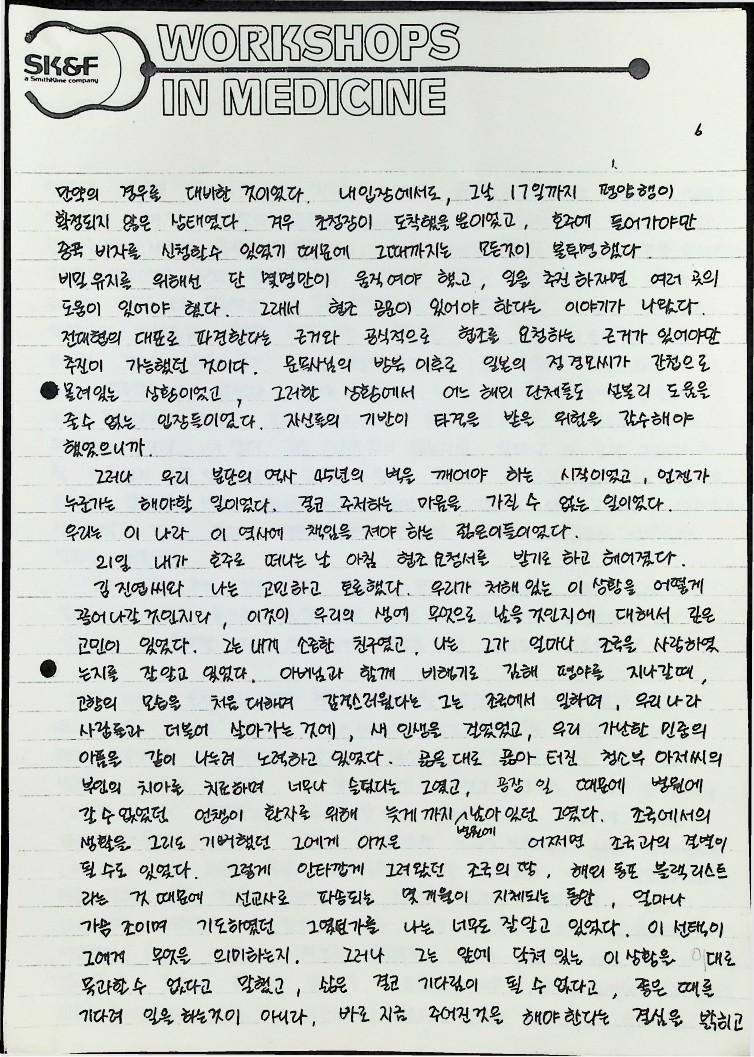 SK&F
a SmithKline company
WORKSHOPS
IN MEDICINE
6
만약의 경우를 대비한 것이었다. 내입장에서도, 그날 17일까지 평양행이
확정되지 않은 상태였다. 겨우 초청장이 도착했을 뿐이었고, 호주에 들어가야만
중국 비자를 신청할수 있었기 때문에 그때까지는 모든것이 불투명했다.
비밀 유지를 위해선 단 몇명만이 움직여야 했고, 일을 추진하자면 여러 곳의
도움이 있어야 했다. 그래서 협조 공문이 있어야 한다는 이야기가 나왔다.
전대협의 대표로 파견한다는 근거와 공식적으로 협조를 요청하는 근거가 있어야만
추진이 가능했던 것이다. 문목사님의 방북 이후로 일본의 정경모씨가 간첩으로
몰려있는 상황이었고, 그러한 상황에서 어느 해외 단체들도 선불리 도움을
줄수 없는 입장들이었다. 자신들의 기반이 타격을 받을 위험을 감수해야
했었으니까.
그러나 우리 분단의 역사 45년의 벽을 깨어야 하는 시작이었고, 언젠가
누군가는 해야할 일이었다. 결코 주저하는 마음을 가질 수 없는 일이었다.
우리는 이 나라 이 역사에 책임을 져야 하는 젊은이들이었다.
21일 내가 호주로 떠나는 날 아침 협조 요청서를 받기로 하고 헤어졌다.
김진엽씨와 나는 고민하고 토론했다. 우리가 처해 있는 이 상황을 어떻게
끌어나갈 것인지와, 이것이 우리의 생에 무엇으로 남을 것인지에 대해서 깊은
고민이 있었다. 그는 내게 소중한 친구였고, 나는 그가 얼마나 조국을 사랑하였
는지를 잘 알고 있었다. 아버님과 함께 비행기로 김해 평야를 지나갈때,
고향의 모습을 처음 대하며 감격스러웠다는 그는 조국에서 일하며, 우리나라
사람들과 더불어 살아가는 것에, 새 인생을 걸었었고, 우리 가난한 민중의
아픔을 같이 나누려 노력하고 있었다. 곪을대로 곪아 터진 청소부 아저씨의
부인의 치아를 치료하며 너무나 슬펐다는 그였고, 공장 일 때문에 병원에
갈 수 없었던 언챙이 환자를 위해 늦게까지 병원에 남아 있던 그였다. 조국에서의
생활을 그리도 기뻐했던 그에게 이것은 어쩌면 조국과의 결별이
될 수도 있었다. 그렇게 안타깝게 그려왔던 조국의 땅, 해외 동포 블랙리스트
라는 것 때문에 선교사로 파송되는 몇 개월이 지체되는 동안, 얼마나
가슴 조이며 기도하였던 그였던가를 나는 너무도 잘 알고 있었다. 이 선택이
그에게 무엇을 의미하는지. 그러나 그는 앞에 닥쳐 있는 이 상황을 이대로
묵과할수 없다고 말했고, 삶은 결코 기다림이 될 수 없다고, 좋은 때를
기다려 일을 하는것이 아니라, 바로 지금 주어진것을 해야 한다는 결심을 밝히고